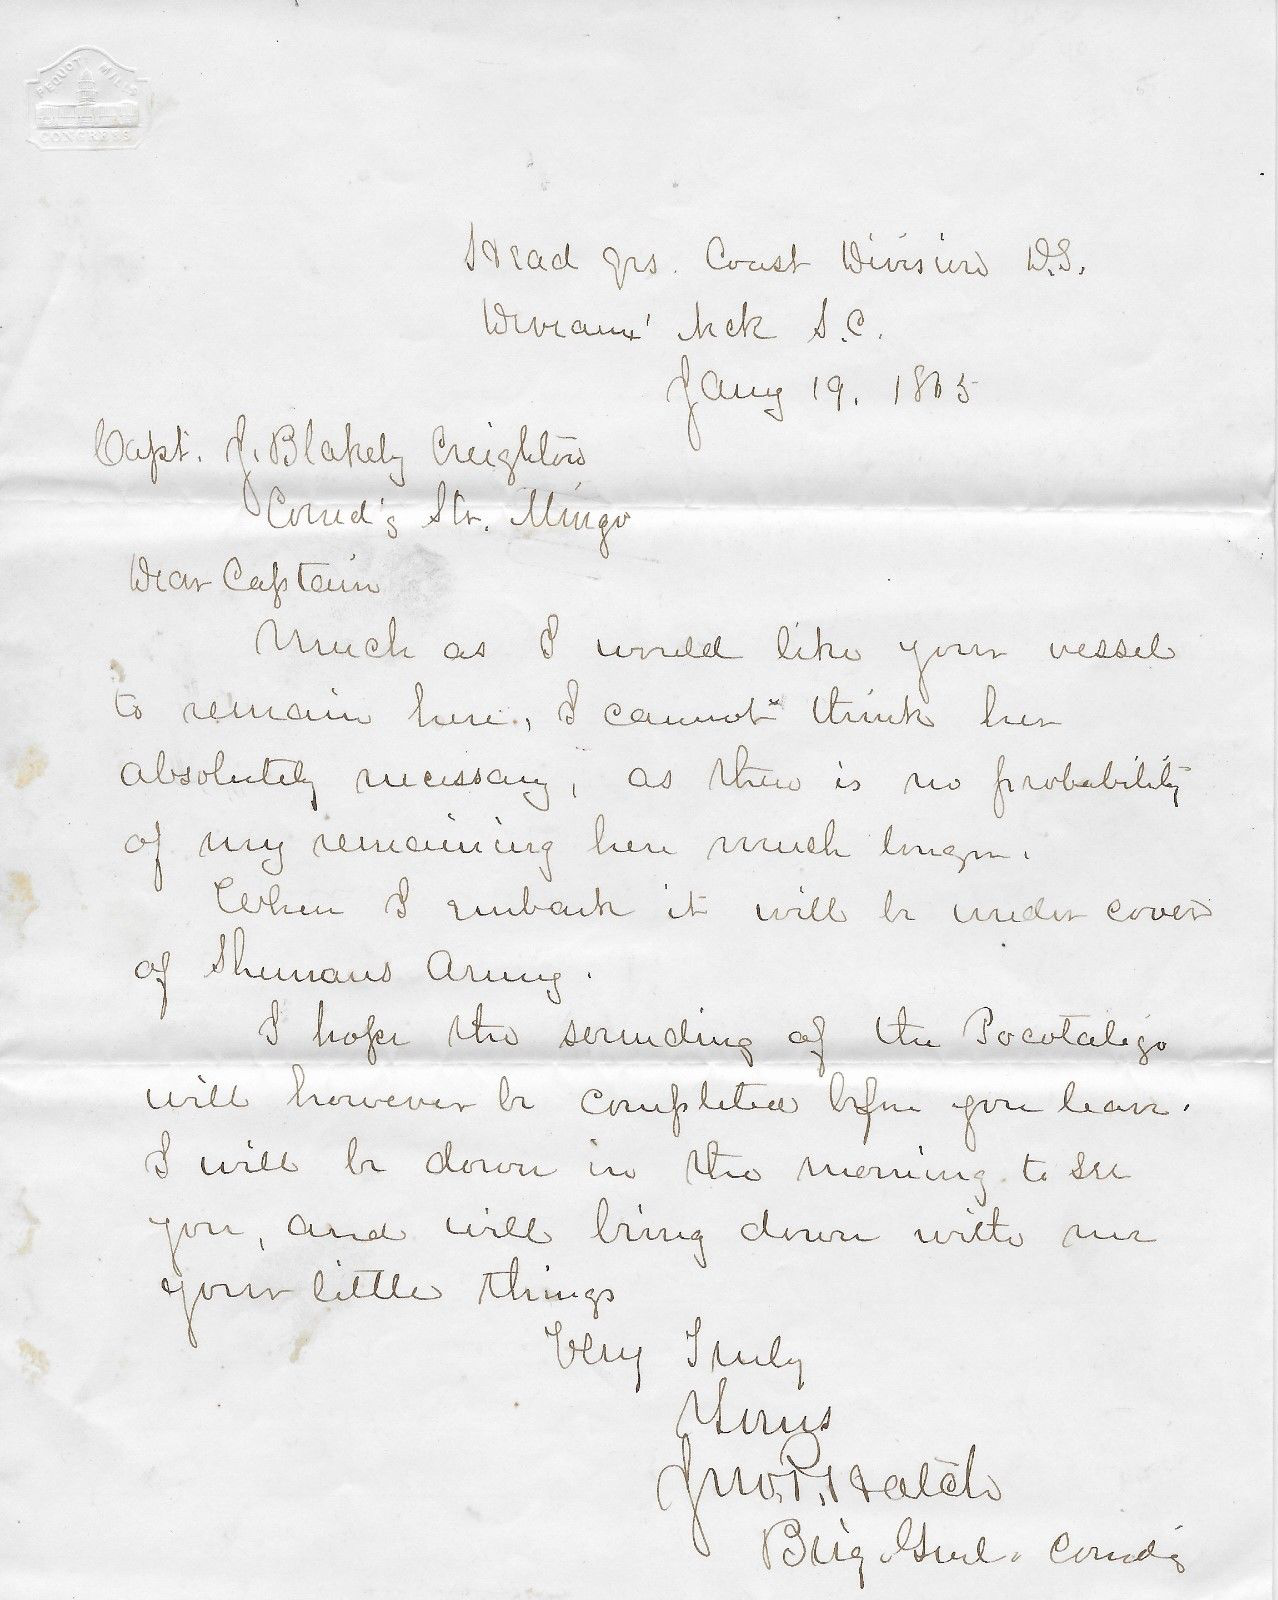 PEQUOT MILLS
CONGRESS
Head Qrs. Coast Division D.S.
Deveaux' Neck S.C.
Jany 19. 1865
Capt. J. Blakely Creighton
Comd'g Str. Mingo
Dear Captain
Much as I would like your vessel
to remain here, I cannot think her
absolutely necessary, as there is no probability
of my remaining here much longer.
When I embark it will be under cover
of Shermans Army.
I hope the sounding of the Pocotaligo
will however be completed before you leave.
I will be down in the morning to see
you, and will bring down with me
your little things
Very Truly
Yours
Jno. P. Hatch
Brig. Genl. Comdg